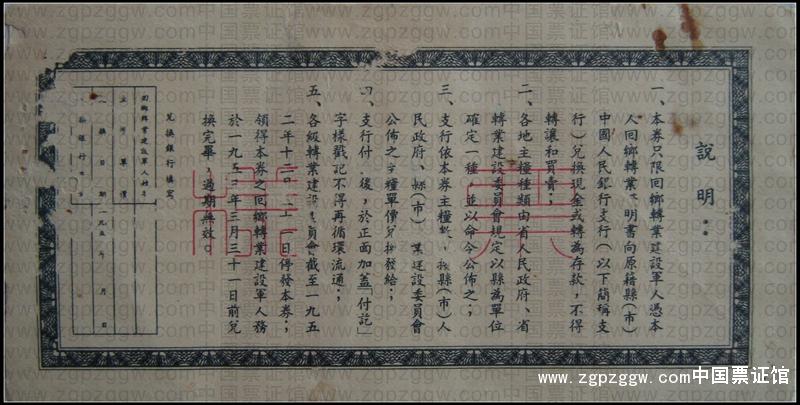 說明
一、本券只限回鄉轉業建設軍人憑本
人回鄉轉業 明書向原籍縣(市)
中國人民銀行支行(以下簡稱支
行)兌換現金或轉為存款，不得
轉讓和買賣；
二、各地主糧種類由省人民政府、省
轉業建設委員會規定以縣為單位
確定一種，並以命令公佈之；
三、支行依本券主糧 縣(市)人
民政府、縣(市) 業建設委員會
公佈之主糧單價兌 發給；
四、支行付 後，於正面加蓋「付訖」
字樣戳記不得再循環流通；
五、各級轉業建設 員會截至一九五
二年十二 三十一日停發本券；
領得本券之回鄉轉業建設軍人務
於一九五 年三月三十一日前兌
換完畢，過期無效。
兌換銀行填寫
回鄉轉業建設軍人姓名
主 單價
換日期 一九五 年 月 日
銀行
www.zgpzggw.com中国票证馆